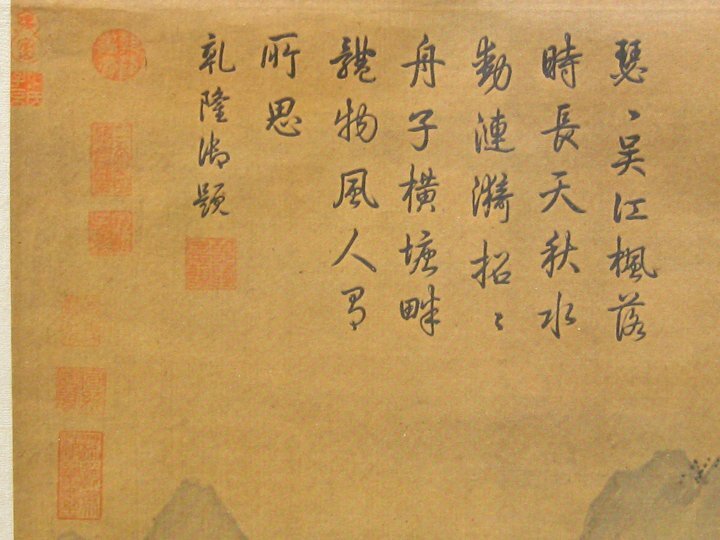 瑟〻吳江楓落
時長天秋水
動漣漪招〻
舟子橫塘畔
體物風人有
所思
乾隆御題